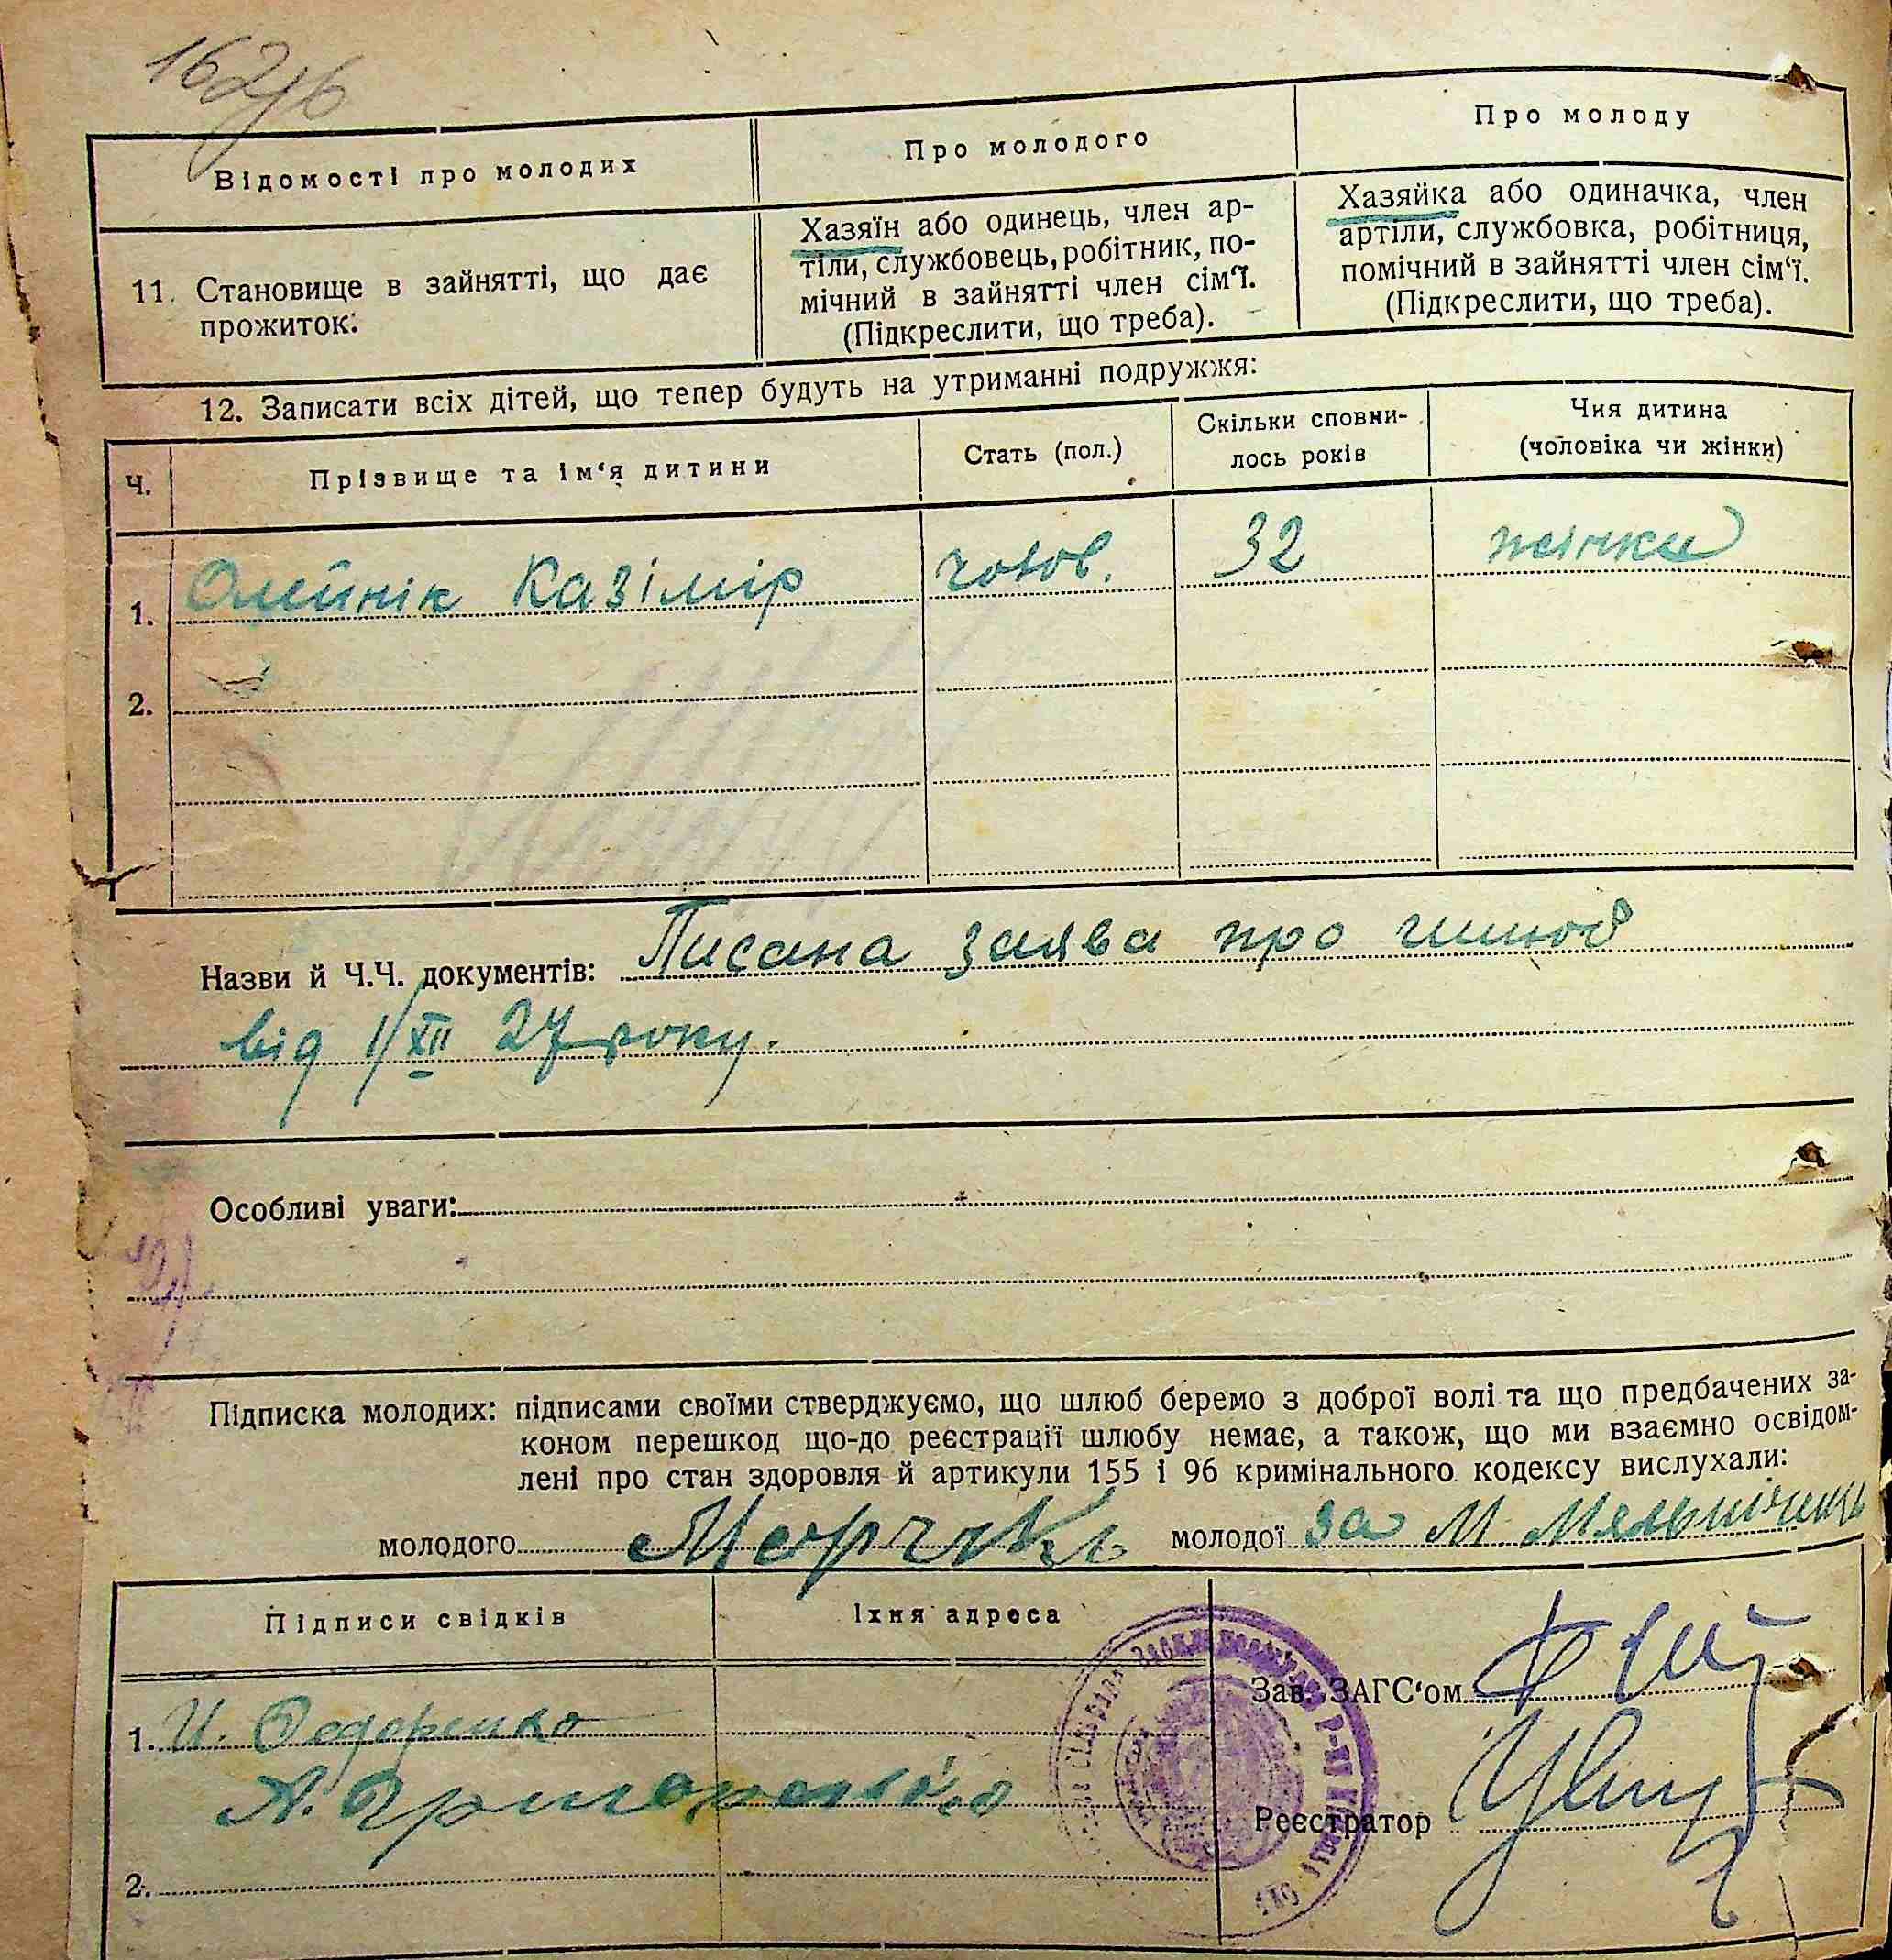 162зб
Відомості про молодих
Про молодого
Про молоду
11. Становище в зайнятті, що дає
прожиток:
Хазяїн або одинець, член ар-
тіли, службовець, робітник, по-
мічний в зайнятті член сім‘ї.
(Підкреслити, що треба).
Хазяйка або одиначка, член
артіли, службовка, робітниця,
помічний в зайнятті член сім‘ї.
(Підкреслити, що треба).
12. Записати всіх дітей, що тепер будуть на утриманні подружжя:
Ч.
Прізвище та ім‘я дитини
Стать (пол.)
Скільки сповни-
лось років
Чия дитина
(чоловіка чи жінки)
1. Олейнік Казімір чолов. 32 жінки
2.
Назви й Ч.Ч. документів: Писана заява про шлюб
від 1/XII 27 року.
Особливі уваги:
Підписка молодих: підписами своїми стверджуємо, що шлюб беремо з доброї волі та що предбачених за-
коном перешкод що-до реєстрації шлюбу немає, а також, що ми взаємно освідом-
лені про стан здоровля й артикули 155 і 96 кримінального кодексу вислухали:
молодого молодої за М.
Підписи свідків
Їхня адреса
1. И. Федоренко
2.
Зав. ЗАГС‘ом
Реєстратор